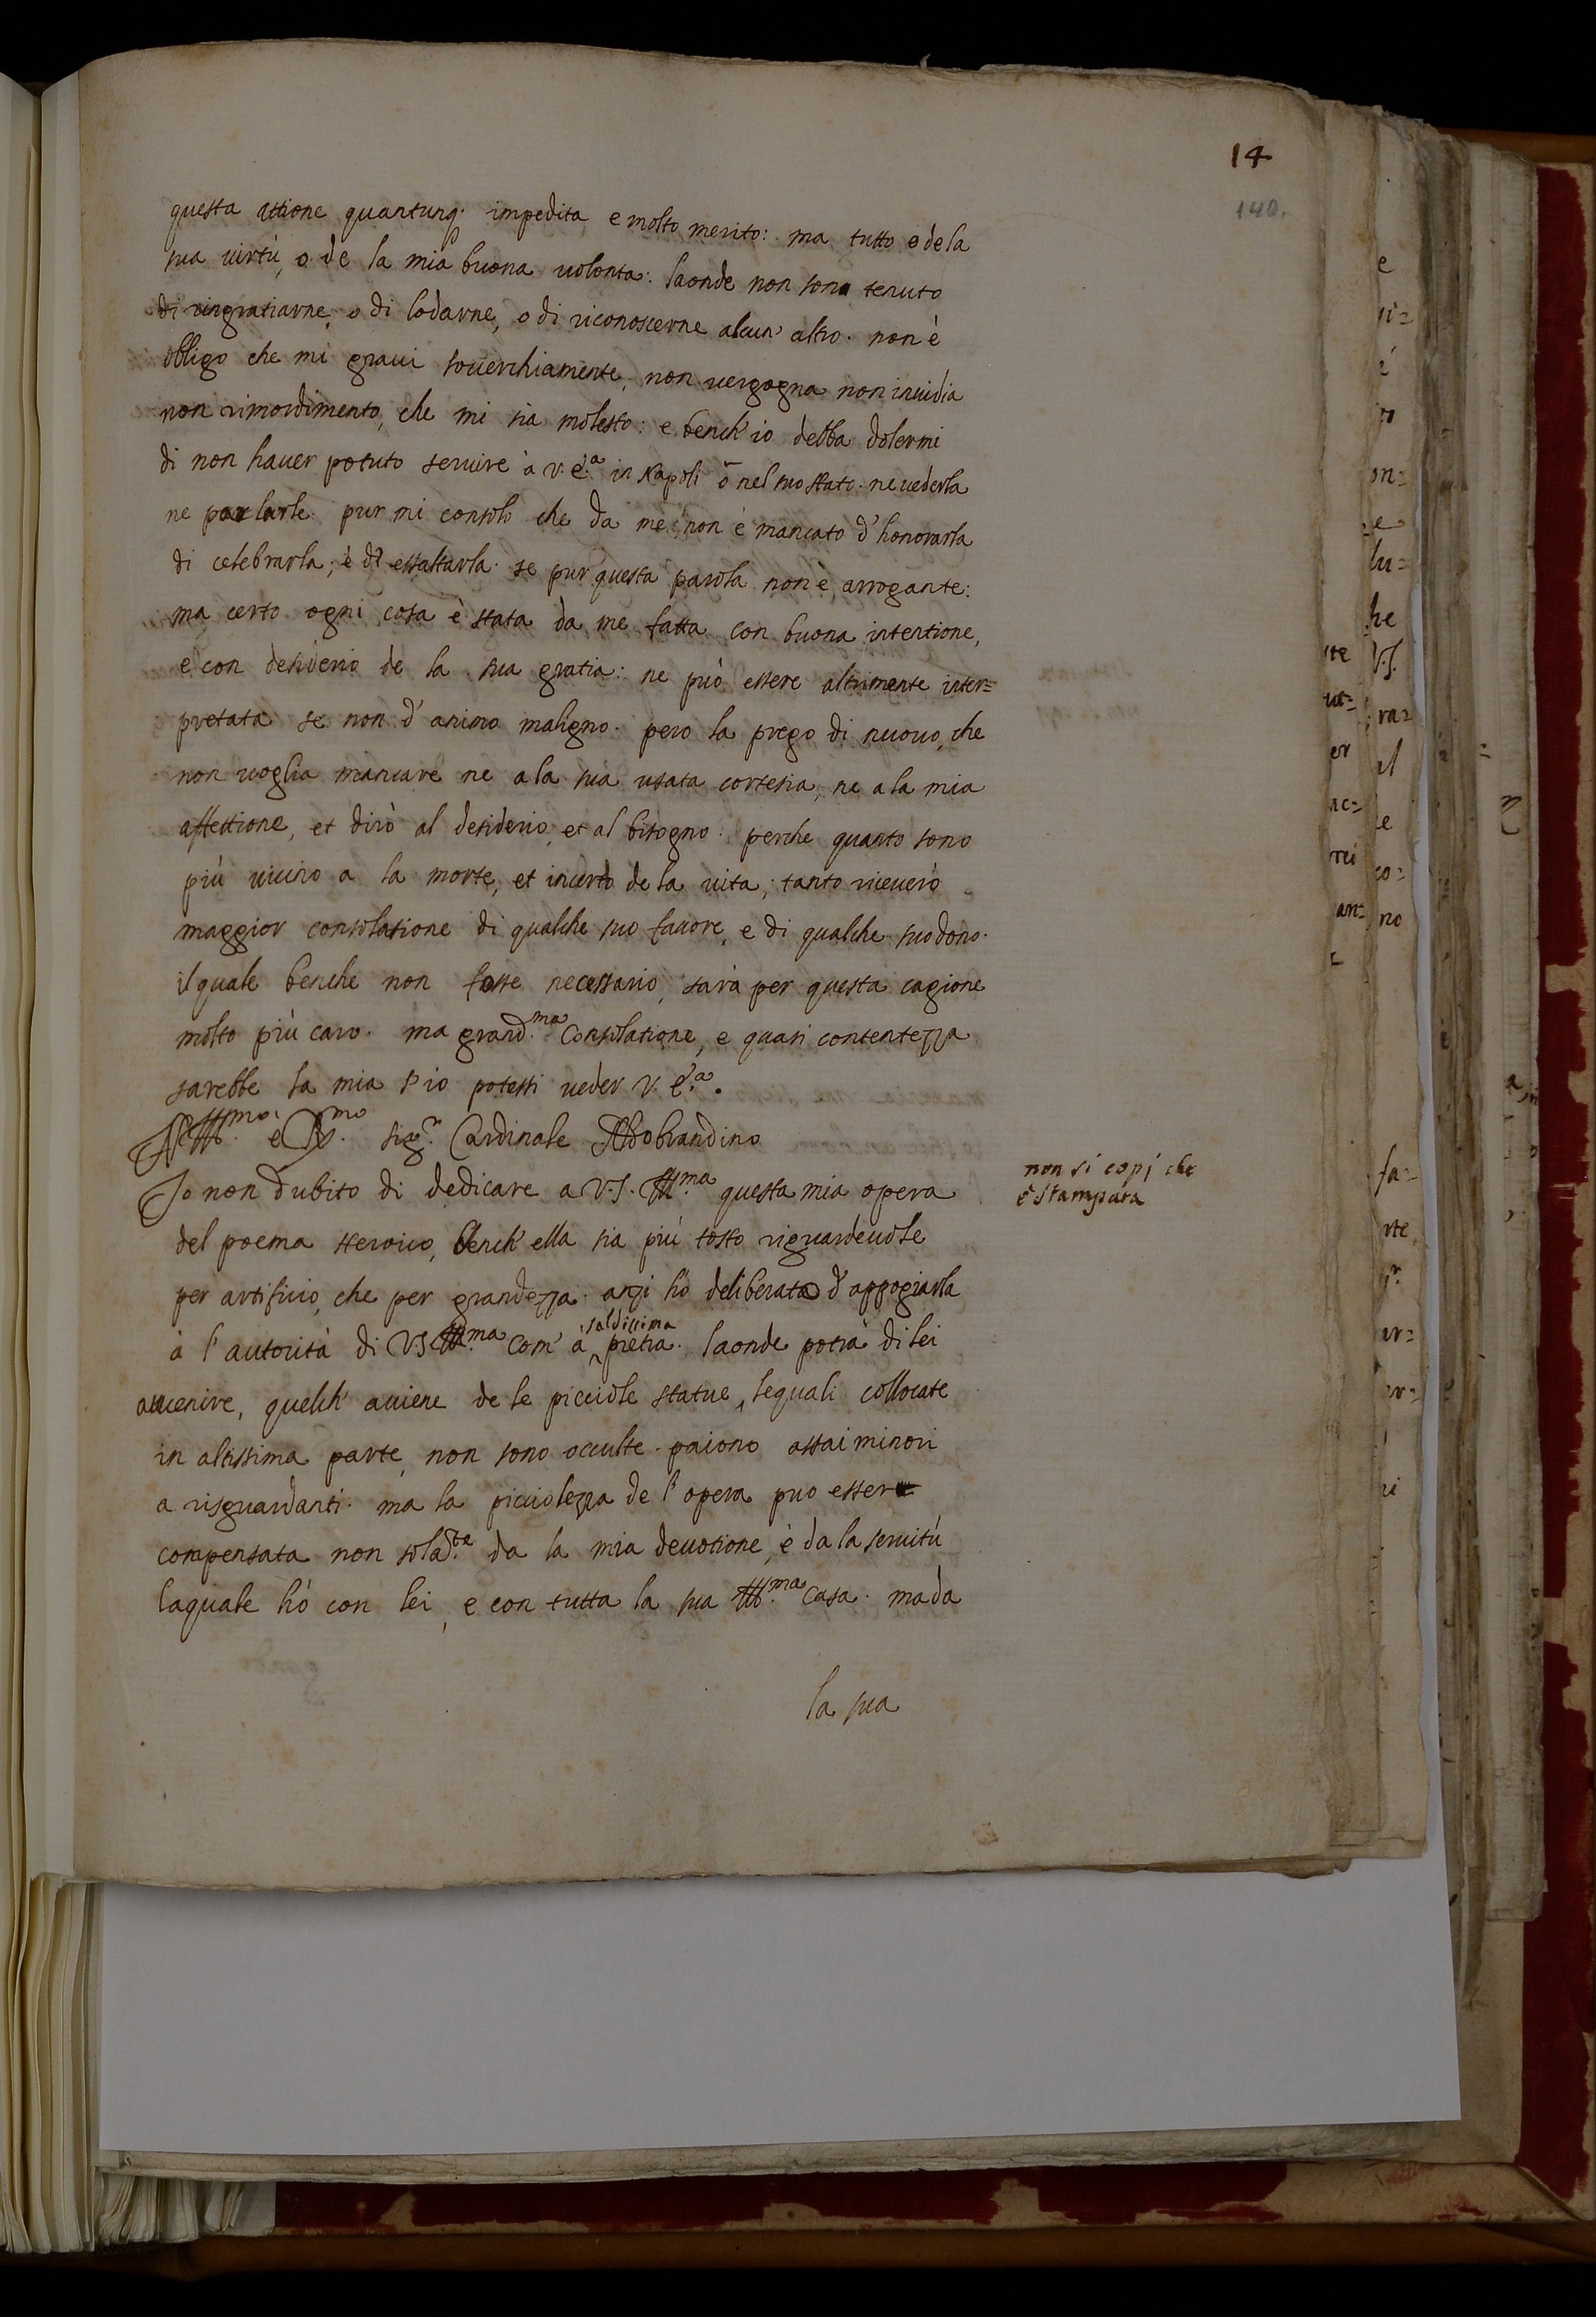 14
140.
questa attione quantunq. impedita e molto merito: ma tutto e de la
sua uirtù, o de la mia buona uolonta: laonde non sono tenuto
di ringratiarne, o di lodarne, o di riconoscerne alcun' altro. non è
obligo che mi graui souerchiamente, non uergogna non inuidia
non rimordimento, che mi sia molesto: e bench' io debba dolermi
di non hauer potuto seruire à v. e.ª in Napoli ò nel suo stato. ne uederla
ne parlarle. pur mi consolo che da me non è mancato d' honorarla
di celebrarla, è di essaltarla. se pur questa parola non è arrogante:
ma certo ogni cosa è stata da me fatta con buona intentione,
e con desiderio de la sua gratia: ne può essere altrimente inter=
pretata se non d' animo maligno. pero la prego di nuouo, che
non uoglia mancare ne a la sua usata cortesia, ne a la mia
affettione, et dirò al desiderio, et al bisogno. perche quanto sono
più uicino a la morte, et incerto de la uita, tanto riceuerò
maggior consolatione di qualche suo fauore, e di qualche suo dono.
il quale benche non fosse necessario, sarà per questa cagione
molto più caro. ma grand.ma Consolatione, e quasi contentezza
sarebbe la mia s' io potessi ueder v. e.ª.
All' Ill.mo e R.mo sig.r Cardinale Aldobrandino
Io non dubito di dedicare a V.S. Ill.ma questa mia opera
non si copj che
è stampata
del poema Heroico, bench' ella sia più tosto riguardeuole
per artificio, che per grandezza. anzi hò deliberato d' appogiarla
à l' autorità di V.S Ill.ma com' à saldissima pietra. laonde potrà di lei
auuenire, quelch' auiene de le picciole statue, lequali collocate
in altissima parte, non sono occulte. paiono assai minori
a risguardanti. ma la picciolezza de l' opera puo esser
compensata non solam.te da la mia deuotione, è da la seruitù
laquale hò con lei, e con tutta la sua Ill.ma Casa. ma da
la sua